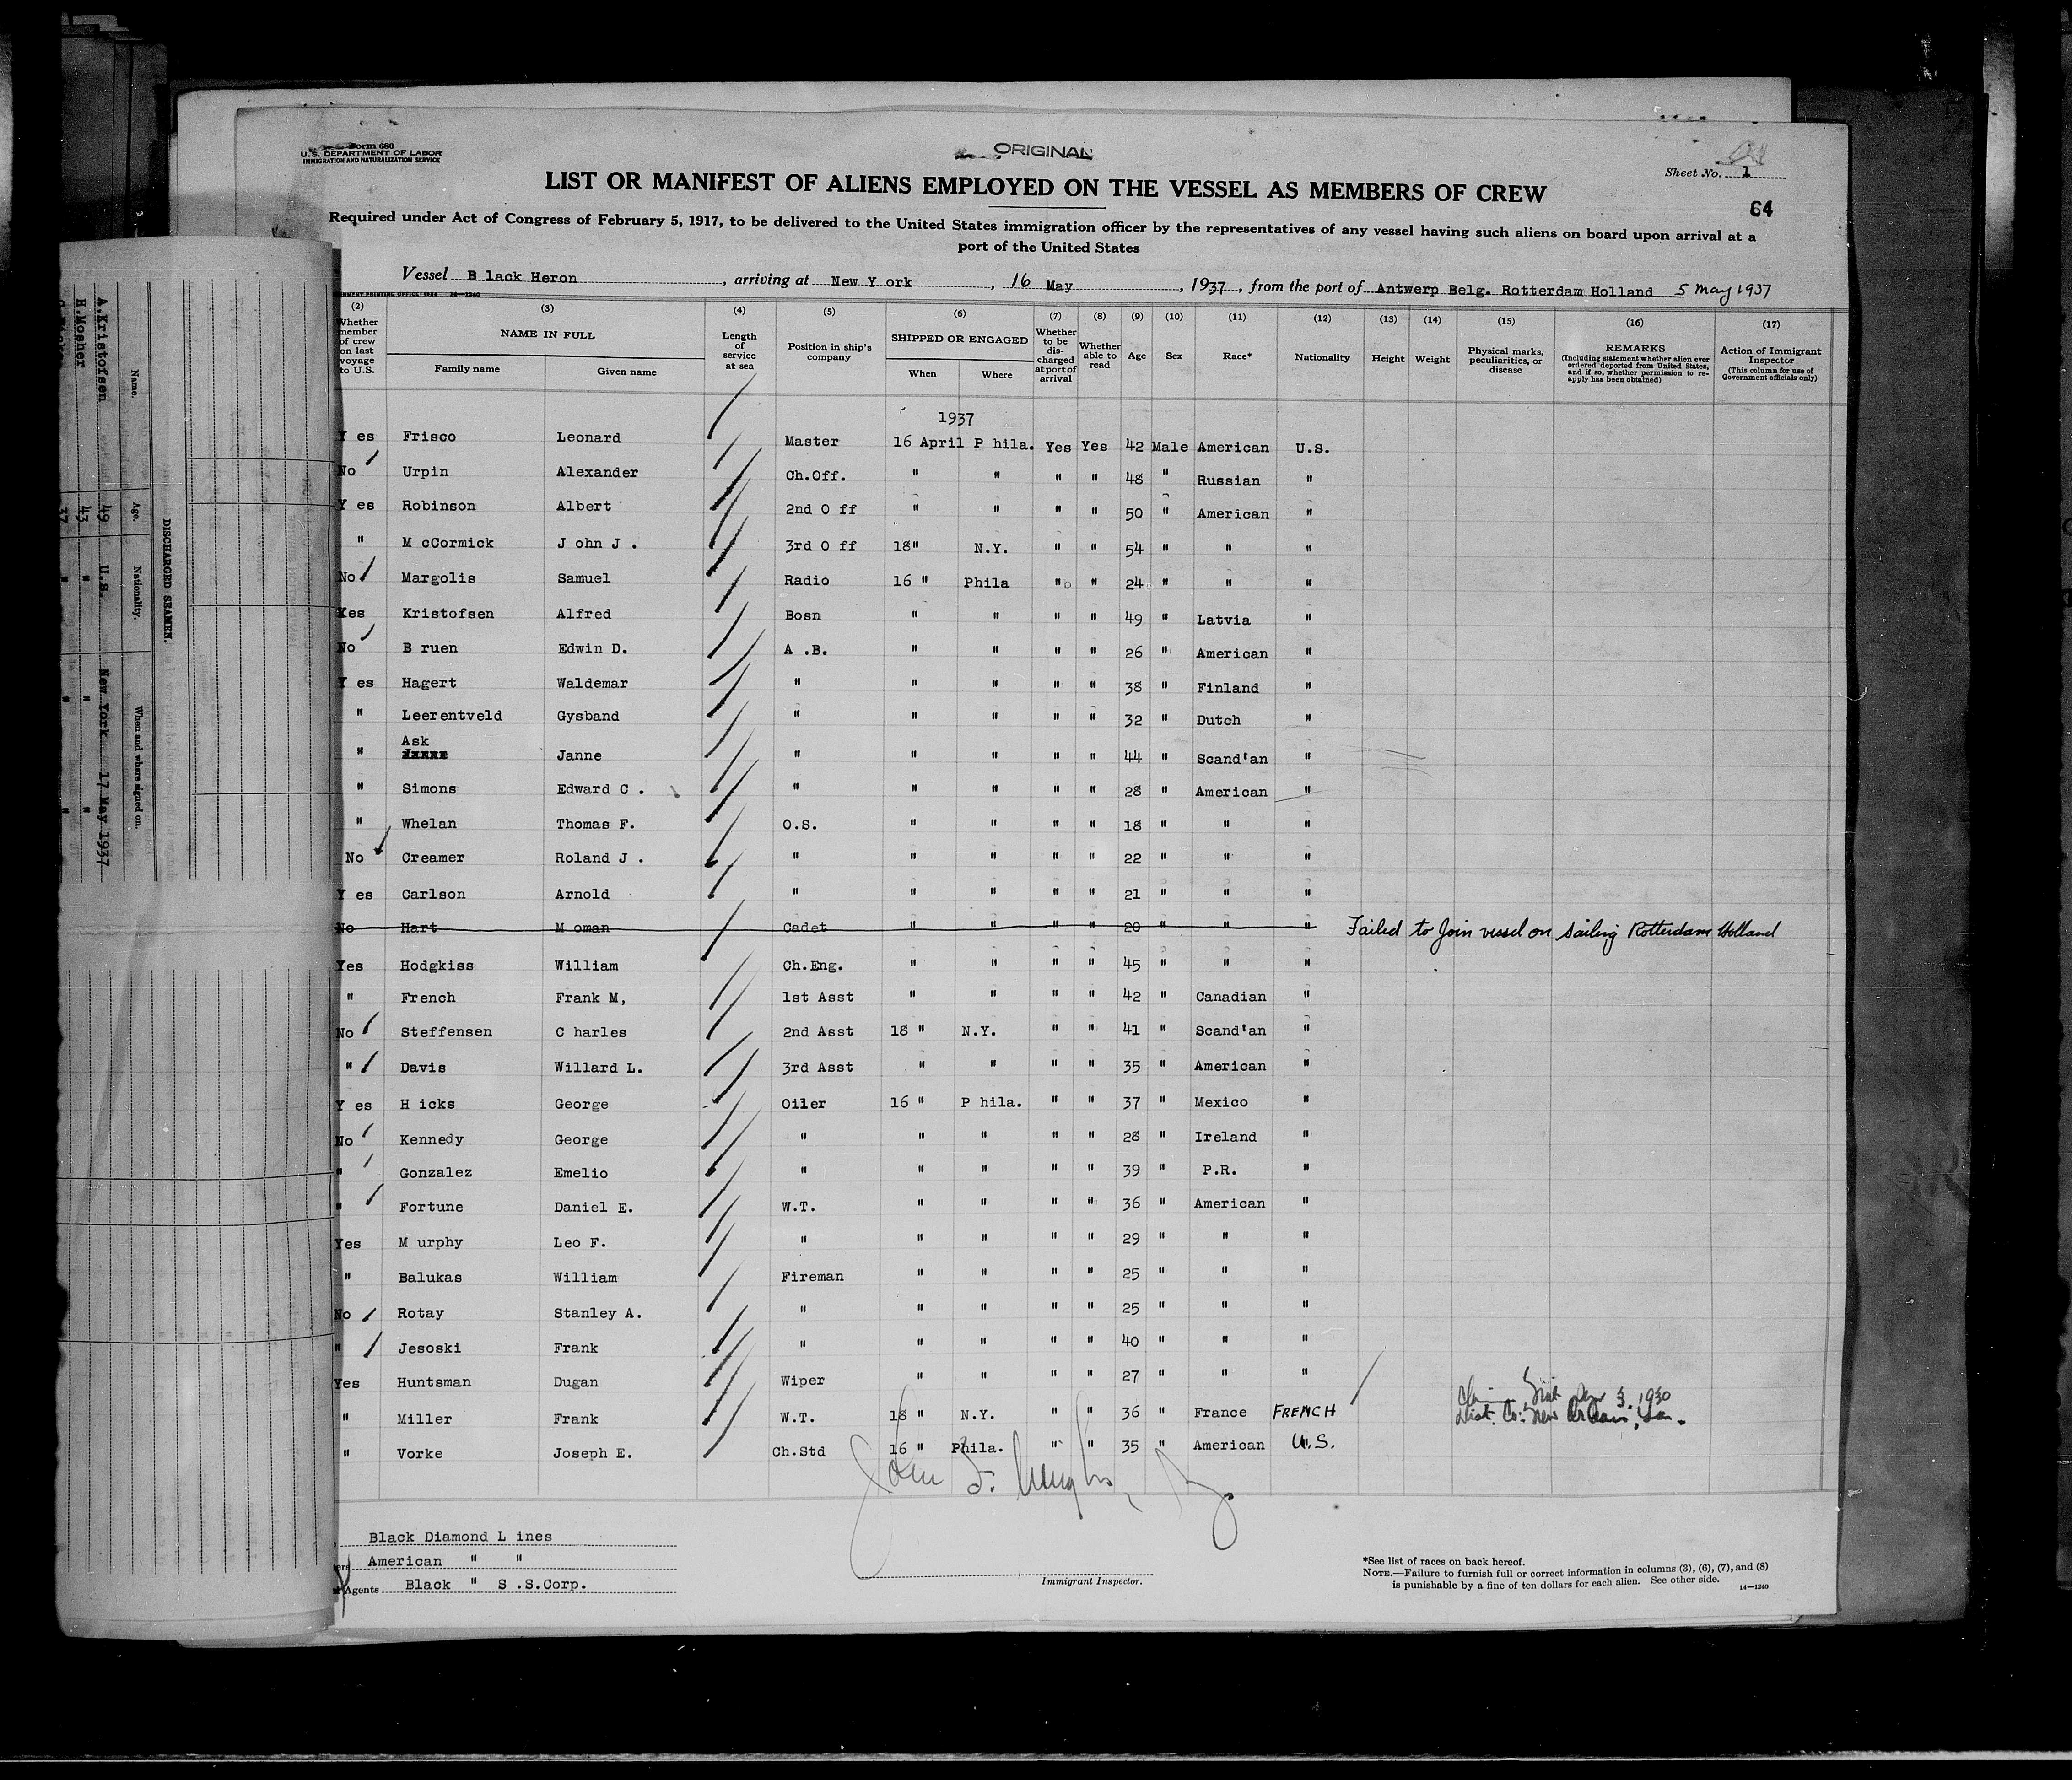 Form 680
U. S. DEPARTMENT OF LABOR
IMMIGRATION AND NATURALIZATION SERVICE
ORIGINAL
Sheet No. 1
LIST OR MANIFEST OF ALIENS EMPLOYED ON THE VESSEL AS MEMBERS OF CREW
64
Required under Act of Congress of February 5, 1917, to be delivered to the United States immigration officer by the representatives of any vessel having such aliens on board upon arrival at a
port of the United States
Vessel B lack Heron, arriving at New Y ork, 16 May, 1937, from the port of Antwerp Belg. Rotterdam Holland 5 May 1937
(2) Whether member of crew on last voyage to U.S.
(3) NAME IN FULL Family name Given name
(4) Length of service at sea
(5) Position in ship's company
(6) SHIPPED OR ENGAGED When Where
(7) Whether to be discharged at port of arrival
(8) Whether able to read
(9) Age
(10) Sex
(11) Race*
(12) Nationality
(13) Height
(14) Weight
(15) Physical marks, peculiarities, or disease
(16) REMARKS (Including statement whether alien ever ordered deported from United States, and if so, whether permission to re-apply has been obtained)
(17) Action of Immigrant Inspector (This column for use of Government officials only)
1937
Y es Frisco Leonard Master 16 April P hila. Yes Yes 42 Male American U.S.
No Urpin Alexander Ch.Off. " " " " 48 " Russian "
Y es Robinson Albert 2nd O ff " " " " 50 " American "
" M cCormick J ohn J . 3rd O ff 18" N.Y. " " 54 " " "
No Margolis Samuel Radio 16 " Phila " " 24 " " "
Yes Kristofsen Alfred Bosn " " " " 49 " Latvia "
No B ruen Edwin D. A .B. " " " " 26 " American "
Y es Hagert Waldemar " " " " " 38 " Finland "
" Leerentveld Gysband " " " " " 32 " Dutch "
Ask
" Janne " " " " " 44 " Scand'an "
" Simons Edward C . " " " " " 28 " American "
" Whelan Thomas F. O.S. " " " " 18 " " "
No Creamer Roland J . " " " " " 22 " " "
Y es Carlson Arnold " " " " " 21 " " "
No Hart M oman Cadet " " " " 20 " " " Failed to Join vessel on sailing Rotterdam Holland
Yes Hodgkiss William Ch.Eng. " " " " 45 " " "
" French Frank M, 1st Asst " " " " 42 " Canadian "
No Steffensen C harles 2nd Asst 18 " N.Y. " " 41 " Scand'an "
" Davis Willard L. 3rd Asst " " " " 35 " American "
Y es H icks George Oiler 16 " P hila. " " 37 " Mexico "
No Kennedy George " " " " " 28 " Ireland "
" Gonzalez Emelio " " " " " 39 " P.R. "
" Fortune Daniel E. W.T. " " " " 36 " American "
Yes M urphy Leo F. " " " " " 29 " " "
" Balukas William Fireman " " " " 25 " " "
No Rotay Stanley A. " " " " " 25 " " "
" Jesoski Frank " " " " " 40 " " "
Yes Huntsman Dugan Wiper " " " " 27 " " "
" Miller Frank W.T. 18 " N.Y. " " 36 " France FRENCH 3, 1930
Dist. Co. New Orleans, La.
" Vorke Joseph E. Ch.Std 16 " Phila. " " 35 " American U.S.
Black Diamond L ines
American " "
Agents Black " S .S.Corp.
Immigrant Inspector.
*See list of races on back hereof.
NOTE.—Failure to furnish full or correct information in columns (3), (6), (7), and (8)
is punishable by a fine of ten dollars for each alien. See other side.
14—1240
DISCHARGED SEAMEN.
Name. Age. Nationality. When and where signed on.
A.Kristofsen 49 U.S. New York 17 May 1937
H.Mosher 43 " " "
37 " " "